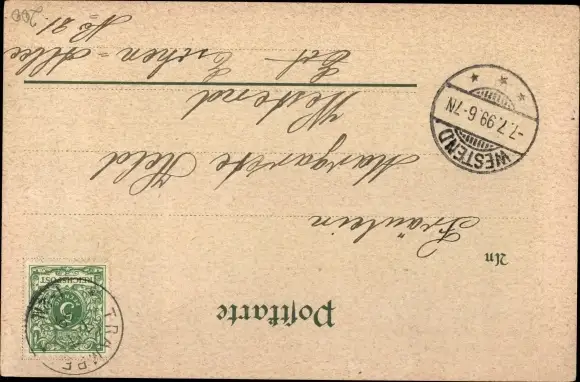 Postkarte
REICHSPOST
5
TRAMPE
An
Fräulein
Margarete Held
Westend
Eschen-Allee
No 21.
WESTEND
-7.7.99.6-7N.
200